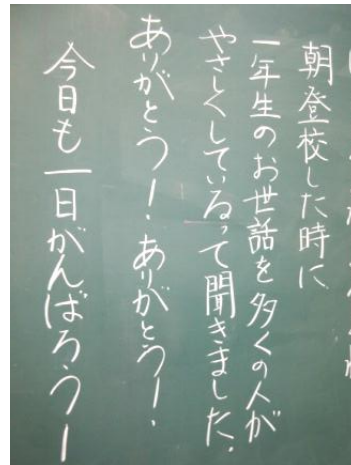 朝登校した時に
一年生のお世話を多くの人が
やさしくしているって聞きました.
ありがとう!.ありがとう!.
今日も一日がんばろう!